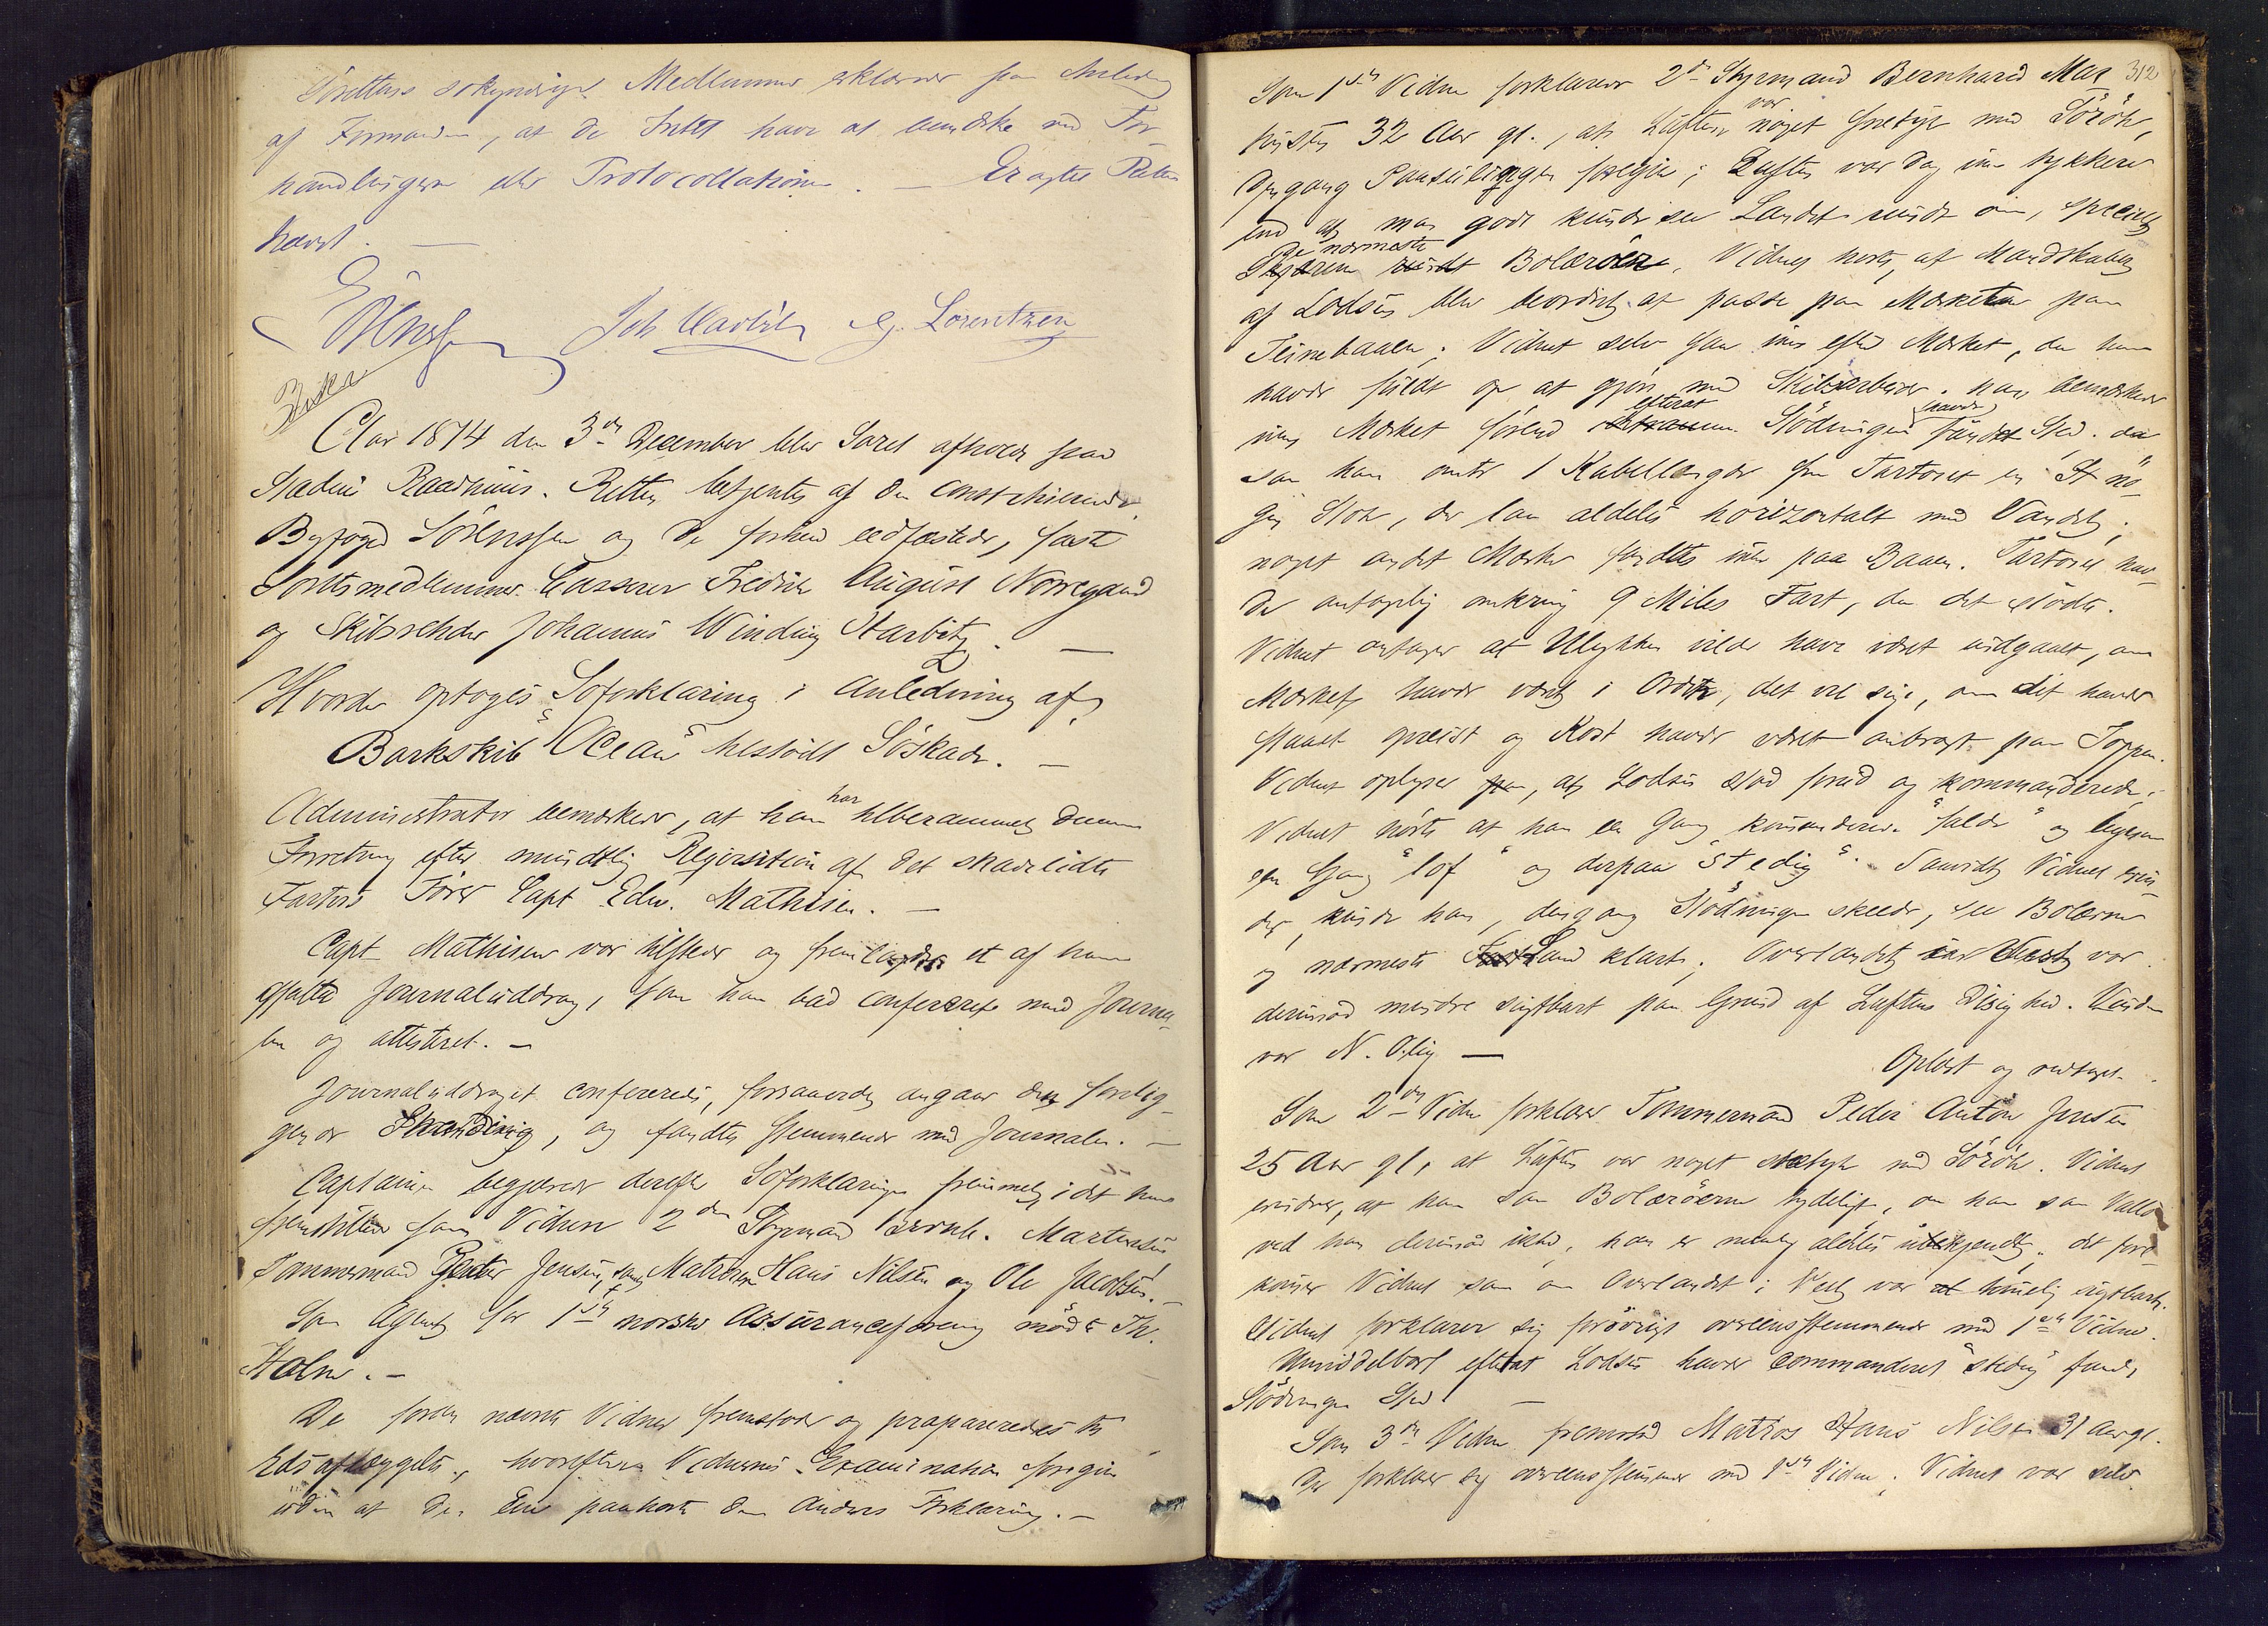 Sørettens sökyndige Medlemmer erklærer paa Anledn
af Formanden, at de Intet have at bemærke ved For
handlingerne eller Protocollationen. — Eragtes Retten
hævet. —
Joh Harbitz G. Lorentzen
Aar 1874 den 3die December blev Søret afholdt paa
Stadens Raadhuus. Retten betjentes af den constituerede
Byfoged Sörenssen og de forhen eedfæstede, faste
Soretsmedlemmer Casserer Fredrik August Norregaard
og Skibsreder Johannes Winding Harbitz. —
Hvorda optoges Söforklaring i Anledning af
Barkskib "Ocean" tilstödte Söskade. —
Administrator bemærkede, at han har tilberammet denne
Forretning efter mundtlig Reqvisition af det skadelidte
Fartøis Fører Capt Edw. Mathisen. —
Capt Mathisen var tilstede og fremlagde et af ham
forfattet Journaluddrag, som han bad confereret med Journa-
len og attesteret. —
Journaluddraget confereredes, forsaavidt angaar den forelig-
gende Stranding, og fandtes stemmende med Journalen. —
Captainen begjærede derefter Söforklaringen fremmet, idet han
fremstillede som Vidner 2den Styrmand Bernh. Martinsen
Tømmermand Peder Jensen, samt Matroserne Hans Nilsen og Ole Jacobsen. —
Som Agent for 1ste norske Assuranceforening mødte Th.
Holm. —
De forden nævnte Vidner fremstode og præpareredes til
Edsaflæggelse, hvorefter Vidnernes Examination foregik
uden at den Ene paahørte den Andens Forklaring. —
312
Som 1ste Vidne forklarer 2den Styrmand Bernhard Mar
32 Aar gl., at Luften var noget med Sörök,
Dengang Paaseilingen foregik; Luften var dog ikke tykkere
end at man godt kunde see Landet rundt om, specielt
De nærmeste Bolærøer. Vidnet hørte, at Mandskabet
af Lodsen blev beordret at passe paa Mærket paa
Teinebaaen. Vidnet selv saa ikke efter Mærket, da han
havde fuldt op at gjøre med Skibsarbeide. han bemærkede
ikke Mærket førend efterat Stödningen havde fundet Sted. da
saa han omtr 1 Kabellængde fra Fartoiet en nö-
gen Stok, der laa aldeles horizontalt med Vandet;
noget andet Mærke fandtes ikke paa Baaen. Fartoiet hav-
de antagelig omkring 9 Miles Fart, da det stödte.
Vidnet antager at Ulykken vilde have været undgaaet, om
Mærket havde været i Orden, det vil sige, om det havde
staaet opreist og Kost havde været anbragt paa Toppen.
Vidnet oplyser, at Lodsen stod forud og kommanderede;
Vidnet hørte at han en Gang kommanderede "falde" og ligesaa
en Gang "lof" og derpaa "stedig". Saavidt Vidnet erin-
drer, kunde han, dengang Stödningen skede, see Bolærne
og nærmeste Land klart; Overlandet i Vest var
derimod mindre sigtbart paa Grund af Luftens Disighed. Vinden
var N. Olig —
Oplæst og vedtaget.
Som 2det Vidne forklarer Tømmermand Peder Anton Jensen
25 Aar gl, at Luften var noget med Sörök. Vidnet
erindrer, at han saa Bolærøerne tydeligt, om han saa Vallö
ved han derimod ikke, han er nemlig aldeles ubekjendt; det fore-
kommer Vidnet som om Overlandet i Vest var temmelig sigtbart.
Vidnet forklarer sig forövrigt overeensstemmende med 1ste Vidne.
Umiddelbart efterat Lodsen havde commanderet "stedig" fandt
Stödningen Sted. —
Som 3die Vidne fremstod Matros Hans Nilsen 31 Aar gl.
Der forklarer sig overeensstemmende med 1ste Vidne. Vidnet var selv